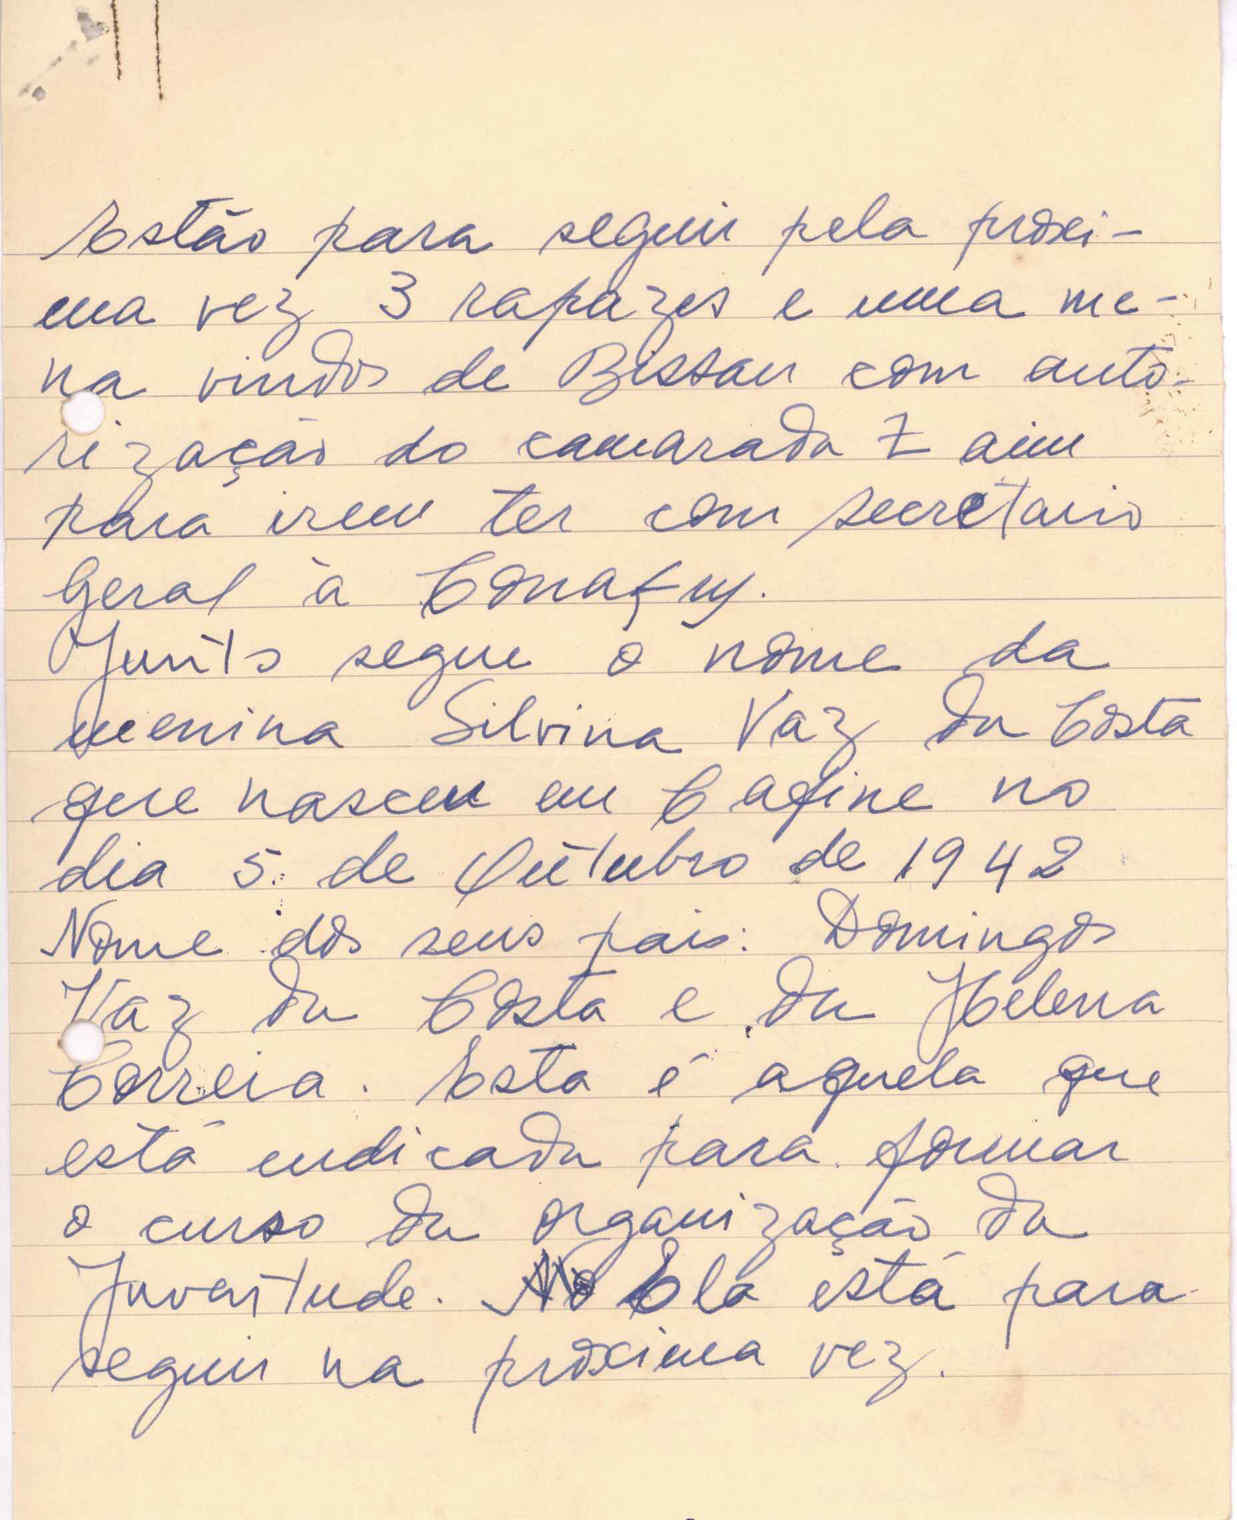 Estão para seguir pela proxi-
ma vez 3 rapazes e uma me-
na vindos de Bissau com auto-
rização do camarada Zain
para irem ter com secretario
Geral à Conakry.
Junto segue o nome da
menina Silvina Vaz da Costa
que nasceu em Cafine no
dia 5 de Outubro de 1942
Nome dos seus pais: Domingos
Vaz da Costa e da Helena
Correia. Esta é aquela que
está indicada para formar
o curso da organização da
Juventude. Ela está para
seguir na proxima vez.